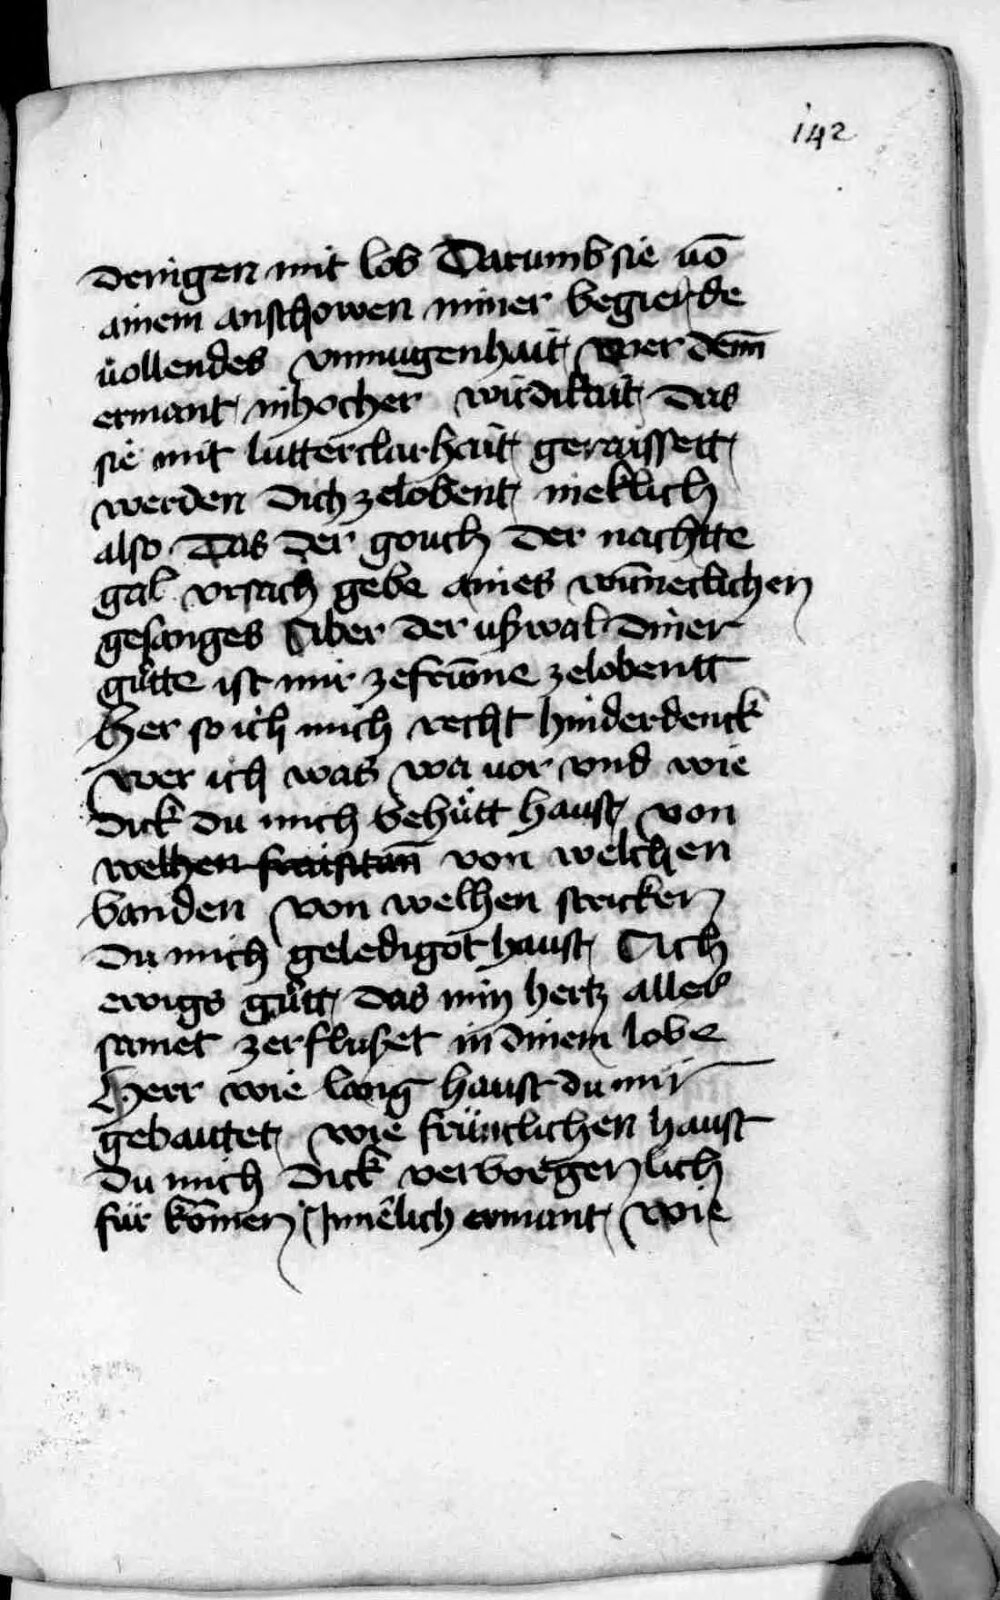 142
denigen mit lob Darumb sie uō
ainem anschowen miner begierde
uollendes vnmugenhait
ermant in hocher wirdikait das
sie mit lutter clarhait geraissett
werden dich ze lobent
also Das der gouch der nachtte
gal vrsach gebe aines wūneclichen
gesanges Aber der ußwal diner
gůtte ist mir zelobentt
Her so ich mich recht hinderdenck
wer ich was wa uor vnd wie
dick du mich behůtt haust von
welhen von welchen
banden von welhen stricken
du mich geledigot haust Ach
ewigs gůtt das min hertz alles
samet zerflußet in dinem lobe
Herr wie lang haust du mir
gebaitet wie früntlichen haust
du mich dick verborgenlich
für kōmen Jnnēlich ermant wie